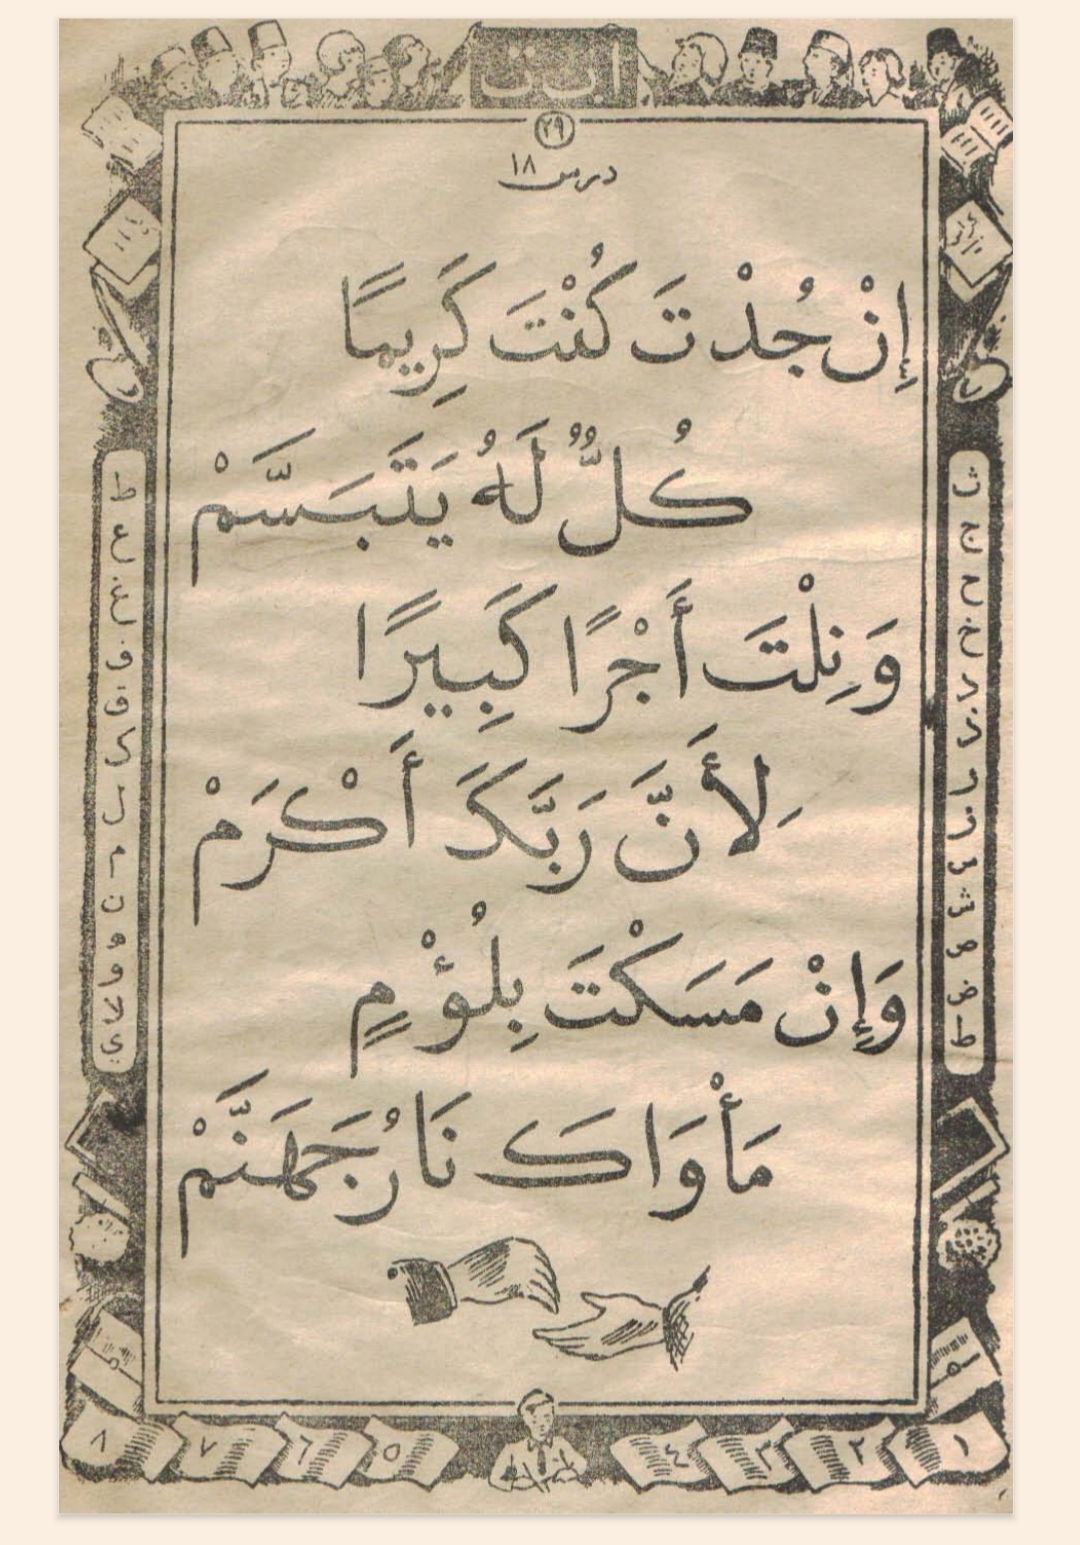 ا ب ت
٢٩
درس ١٨
إِنْ جُدْتَ كُنْتَ كَرِيمًا
كُلٌّ لَهُ يَتَبَسَّمْ
وَنِلْتَ أَجْرًا كَبِيرًا
لِأَنَّ رَبَّكَ أَكْرَمْ
وَإِنْ مَسَكْتَ بِلُؤْمٍ
مَأْوَاكَ نَارُ جَهَنَّمْ
١
٢
٣
٤
٥
٦
٧
٨